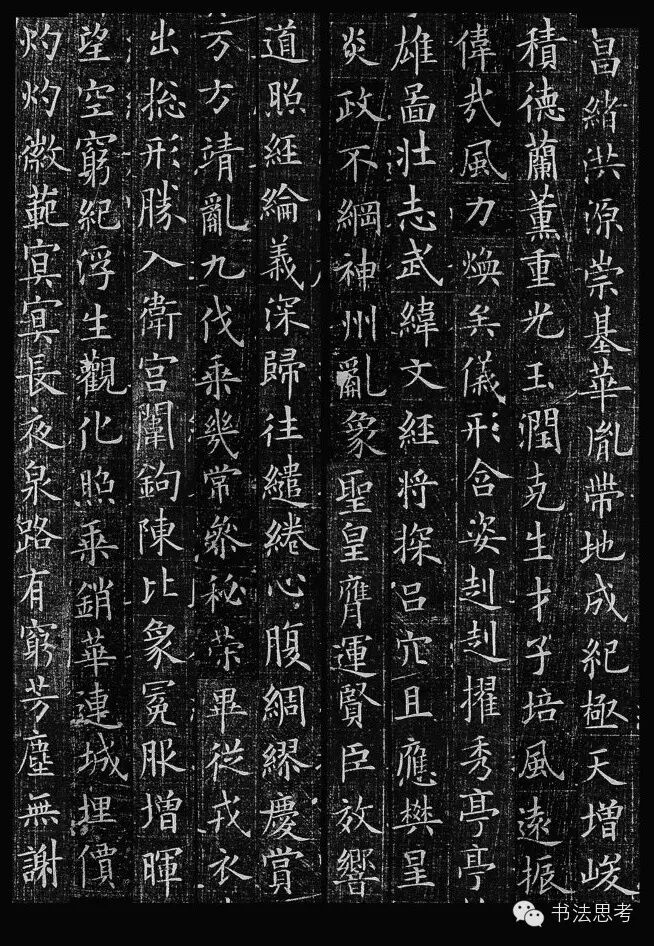 昌緒洪源崇基華胤帶地成紀極天增峻
積德蘭薰重光玉潤克生才子培風遠振
偉哉風力煥矣儀形含姿赳赳擢秀亭亭
雄啚壯志武緯文經將探呂穴且應樊星
炎政不綱神州亂象聖皇膺運賢臣效響
道照經綸義深歸往繾綣心腹綢繆慶賞
方方靖亂九伐乘幾常叅秘荣畢從戎衣
出捴形勝入衛宮闈鉤陳比象冕服增暉
望空窮紀浮生觀化照乘銷華連城埋價
灼灼徽範寘寘長夜泉路有窮芳塵無謝
书法思考